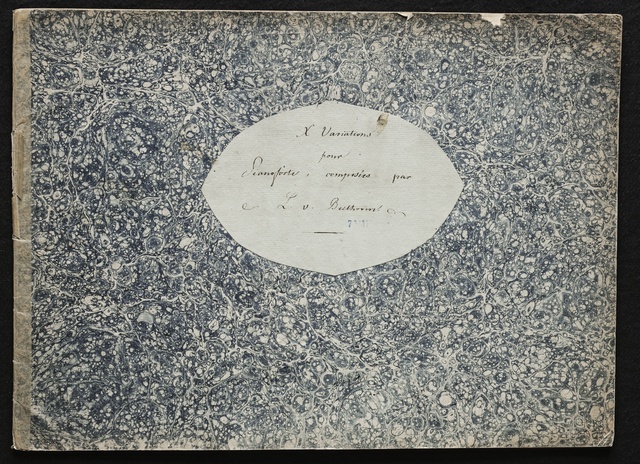 X Variations
pour
Pianoforte, composées par
L v. Beethoven